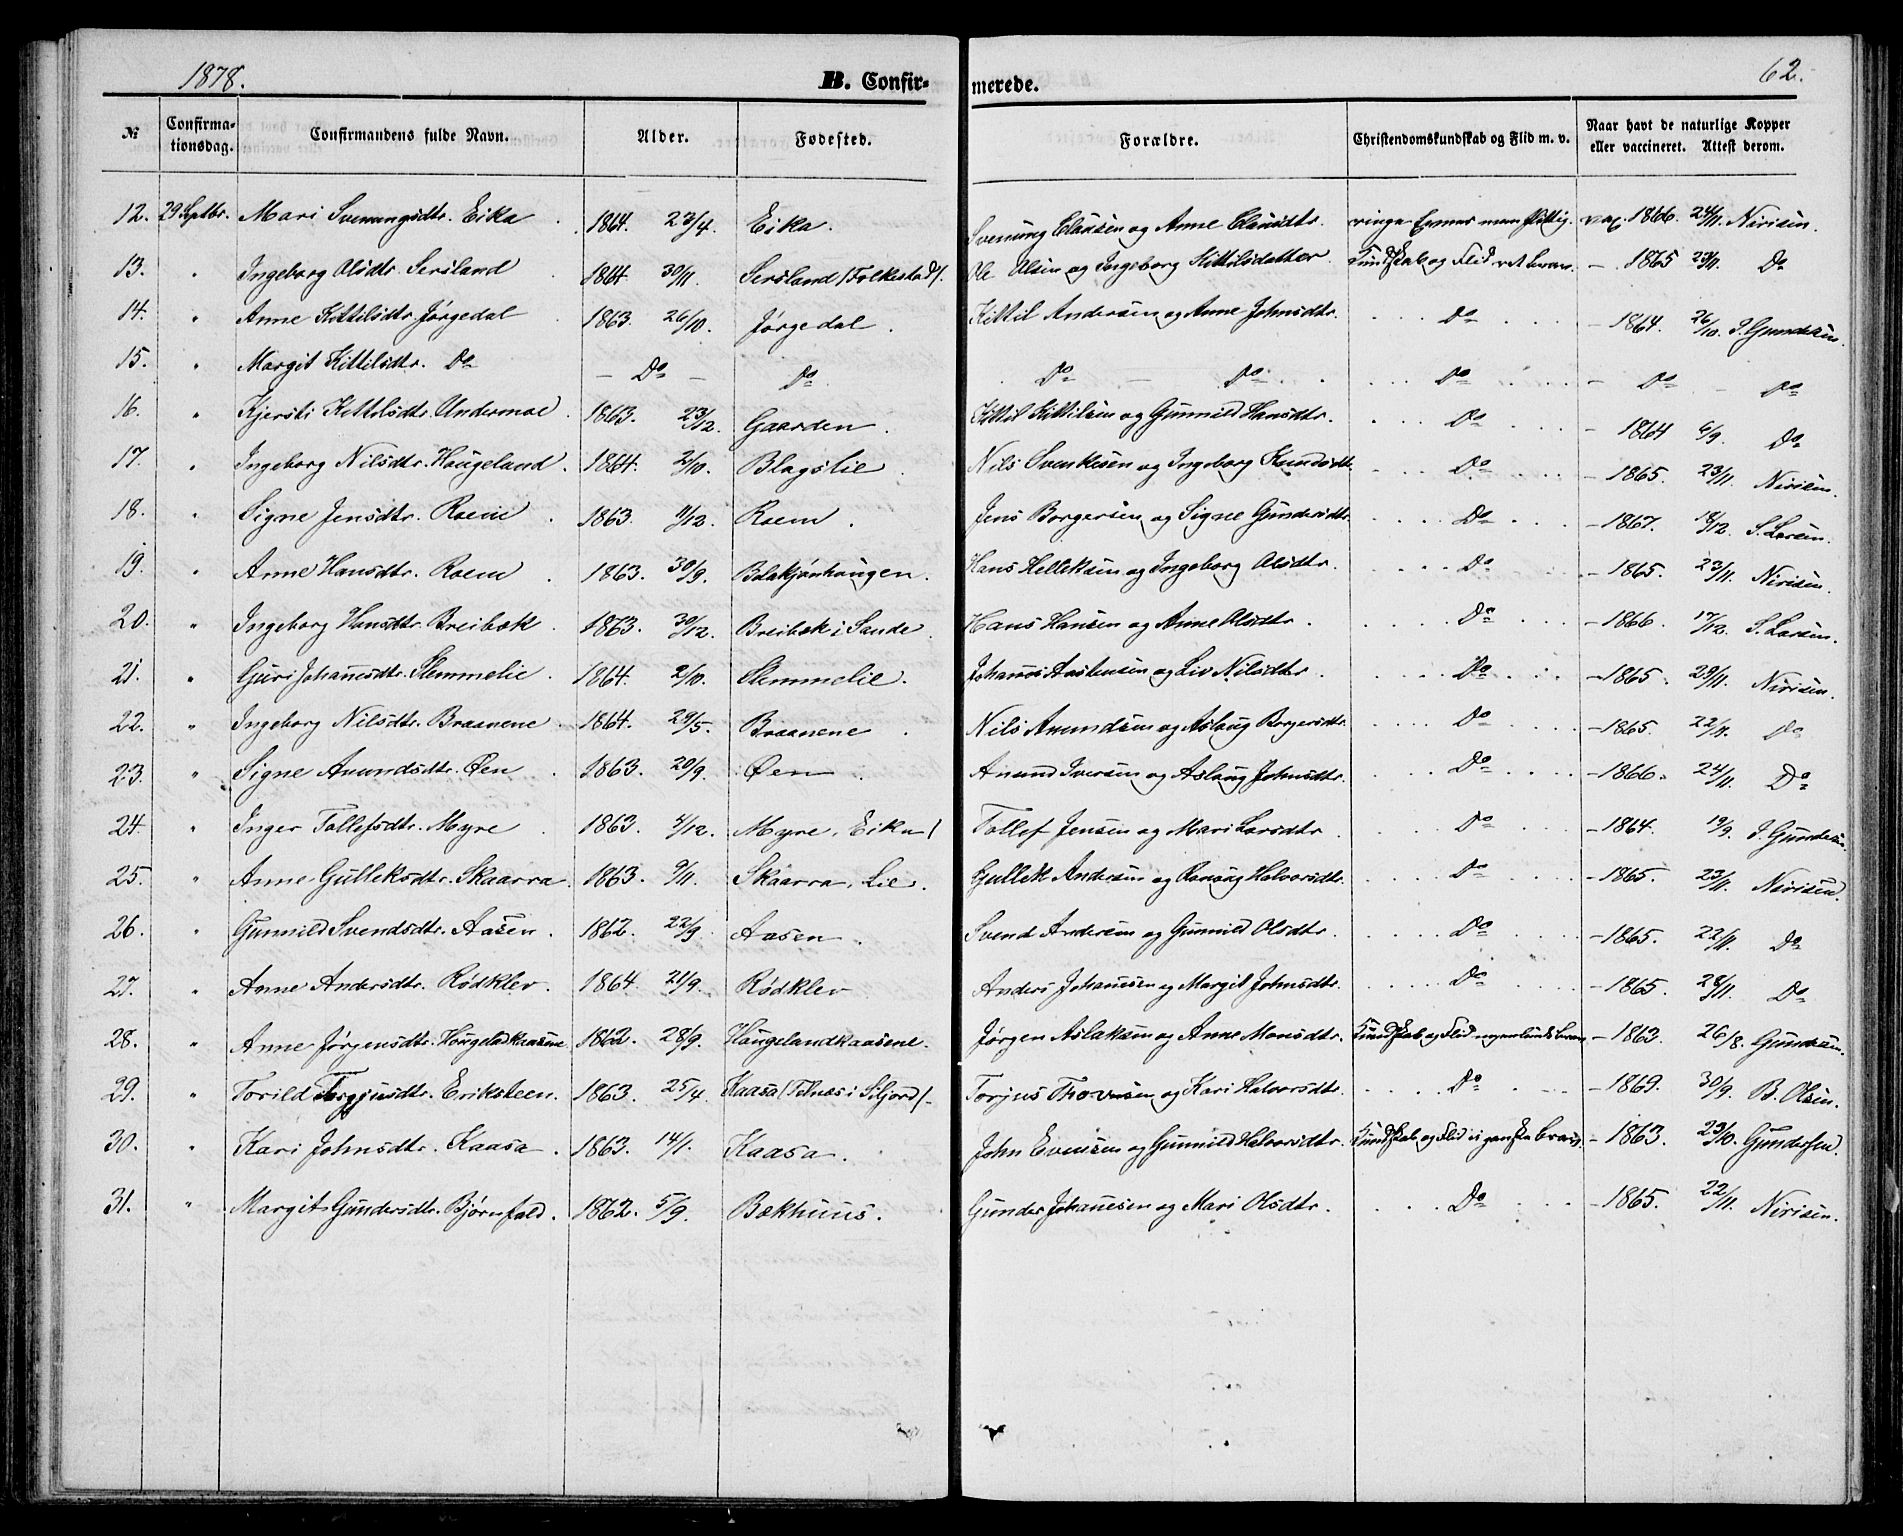 1878. B. Confirmerede. 62.
№ Confirmationsdag. Confirmandens fulde Navn. Alder. Fødested. Forældre. Christendomskundskab og Flid m. v. Naar havt de naturlige Kopper eller vaccineret. Attest derom.
12. 29 Septbr. Mari Svenungsdtr. Eika 1864. 23/4. Eika. Svenung Clausen og Anne Clausdtr. ringe Evner men flittig. vax. 1866. 24/11. Nirisen.
13. " Ingeborg Olsdtr. Sersland 1864 30/11. Sersland /Folkestad/. Ole Olsen og Ingeborg Kittilsdatter Kundskab og Flid ret - 1865 23/11. Do
14. " Anne Kittilsdtr. Jørgedal 1863. 26/10. Jørgedal. Kittil Andersen og Anne Johnsdtr. Do - 1864. 26/10. J. Gundersen.
15. " Margit Kittilsdtr. Do - Do - Do Do - Do Do - Do - Do
16. " Kjersti Kittilsdtr. Undermoe. 1863. 23/12. Gaarden. Kittil Kittilsen og Gunnild Hansdtr. Do - 1864 6/9. Do
17. " Ingeborg Nilsdtr. Haugeland. 1864. 2/10. Blagslie Nils Svenkesen og Ingeborg Knudsdtr. Do - 1865. 23/11. Nirisen.
18. " Signe Jensdtr. Roem 1863. 11/12. Roem. Jens Borgersen og Signe Gundersdtr. Do - 1867. 18/12. S. Larsen.
19. " Anne Hansdtr. Roem 1863. 30/9. Blakjønhaugen. Hans Helleksen og Ingeborg Olsdtr. Do - 1865. 23/11. Nirisen.
20. " Ingeborg Hansdtr. Breibek 1863. 30/12. Breibek i Sande. Hans Hansen og Anne Olsdtr. Do - 1866. 17/12. S. Larsen.
21. " Guri Johanesdtr. Slemmelie. 1864. 2/10. Slemmelie. Johanes Aslensen og Liv Nilsdtr. Do - 1865. 23/11. Nirisen.
22. " Ingeborg Nilsdtr. Braanene. 1864. 29/5. Braanene Nils Anundsen og Aslaug Borgersdtr. Do - 1865. 22/11. Do
23. " Signe Anundsdtr. Øen 1863. 20/9. Øen Anund Iversen og Aslaug Johnsdtr. Do - 1866. 24/11. Do
24. " Inger Tollefsdtr. Myre 1863. 4/12. Myre, Eika/ Tollef Jensen og Mari Larsdtr. Do - 1864. 19/9. J. Gundersen.
25. " Anne Gulleksdtr. Skaarra. 1863. 9/11. Skaarra, Lie. Gullek Andersen og Ranaug Halvorsdtr. Do - 1865. 23/11. Nirisen.
26. " Gunnild Svendsdtr. Aasen. 1862. 22/9 Aasen. Svend Andersen og Gunnild Olsdtr. Do - 1865. 22/11. Do
27. " Anne Andersdtr. Rødklev. 1864. 21/9. Rødklev Anders Johanesen og Margit Johnsdtr. Do - 1865. 28/11. Do
28. " Anne Jørgensdtr. Haugelandkaasene 1862. 28/9. Haugelandkaasene. Jørgen Aslaksen og Anne Monsdtr. Kundskab og Flid - 1863. 26/8. Gundersen.
29. " Torild Torgjusdtr. Eriksteen. 1863. 25/4. Kaasa (Telnæs i Siljord/- Torjus Thovsen og Kari Halvorsdtr. Do - 1869. 30/9. B. Olsen.
30. " Kari Johnsdtr. Kaasa. 1863. 14/1. Kaasa. John Evensen og Gunnild Halvorsdtr. Kundskab og Flid ei ganske - 1863. 29/10. Gundersen.
31. " Margit Gundersdtr. Bjørnfald. 1862. 5/9. Bekhuus. Gunder Johanesen og Mari Olsdtr. Do - 1865. 22/11. Nirisen.